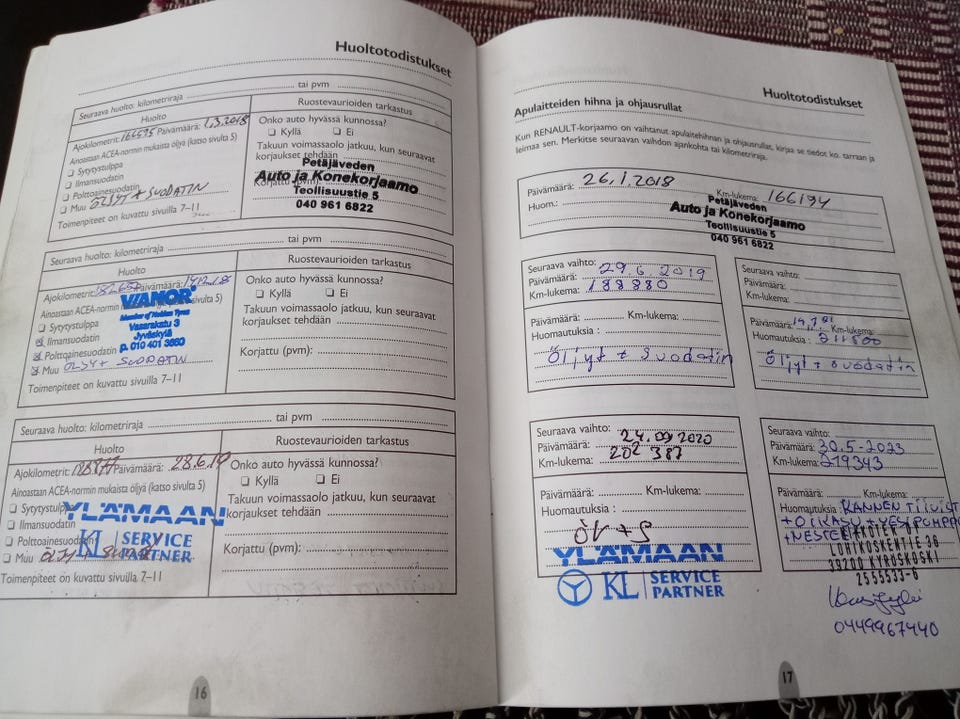 Huoltotodistukset
Seuraava huolto: kilometriraja ........ tai pvm ........
Huolto
Ajokilometrit: 166595 Päivämäärä: 1.3.2018
Ainoastaan ACEA-normin mukaista öljyä (katso sivulta 5)
Sytytystulppa
Ilmansuodatin
Polttoainesuodatin
Muu ÖLJYT + SUODATIN
Toimenpiteet on kuvattu sivuilla 7–11
Ruostevaurioiden tarkastus
Onko auto hyvässä kunnossa?
Kyllä Ei
Takuun voimassaolo jatkuu, kun seuraavat
korjaukset tehdään
Korjattu (pvm):
Petäjäveden
Auto ja Konekorjaamo
Teollisuustie 5
040 961 6822
Seuraava huolto: kilometriraja ........ tai pvm ........
Huolto
Ajokilometrit: Päivämäärä:
Ainoastaan ACEA-normin sivulta 5)
Sytytystulppa
Ilmansuodatin
Polttoainesuodatin
Muu ÖLJYT + SUODATIN
Toimenpiteet on kuvattu sivuilla 7–11
VIANOR
Member of Nokian Tyres
Vasarakatu 3
Jyväskylä
p. 010 401 3860
Ruostevaurioiden tarkastus
Onko auto hyvässä kunnossa?
Kyllä Ei
Takuun voimassaolo jatkuu, kun seuraavat
korjaukset tehdään ........
Korjattu (pvm): ........
Seuraava huolto: kilometriraja ........ tai pvm ........
Huolto
Ajokilometrit: Päivämäärä: 28.6.19
Ainoastaan ACEA-normin mukaista öljyä (katso sivulta 5)
Sytytystulppa
Ilmansuodatin
Polttoainesuodatin
Muu
Toimenpiteet on kuvattu sivuilla 7–11
YLÄMAAN
KL SERVICE
PARTNER
Ruostevaurioiden tarkastus
Onko auto hyvässä kunnossa?
Kyllä Ei
Takuun voimassaolo jatkuu, kun seuraavat
korjaukset tehdään ........
Korjattu (pvm): ........
16
Huoltotodistukset
Apulaitteiden hihna ja ohjausrullat
Kun RENAULT-korjaamo on vaihtanut apulaitehihnan ja ohjausrullat, kirjaa se tiedot ko. tarraan ja
leimaa sen. Merkitse seuraavan vaihdon ajankohta tai kilometriraja.
Päivämäärä: 26.1.2018 Km-lukema: 166194
Huom.:
Petäjäveden
Auto ja Konekorjaamo
Teollisuustie 5
040 961 6822
Seuraava vaihto:
Päivämäärä: 29.6 2019
Km-lukema: 188880
Päivämäärä: ........ Km-lukema: ........
Huomautuksia :
Öljyt + suodatin
Seuraava vaihto:
Päivämäärä:
Km-lukema:
Päivämäärä: Km-lukema:
Huomautuksia : 211500
Öljyt + suodatin
Seuraava vaihto:
Päivämäärä: 24.09 2020
Km-lukema: 202 387
Päivämäärä: ........ Km-lukema: ........
Huomautuksia :
ÖV + S
YLÄMAAN
KL SERVICE
PARTNER
Seuraava vaihto:
Päivämäärä: 30.5-2023
Km-lukema: 219343
Päivämäärä: ........ Km-lukema: ........
Huomautuksia : KANNEN TIIVIST
+ OIKASU + VESIPUMPPU
+ NESTEET
LOHIKOSKENTIE 26
39200 KYRÖSKOSKI
2555533-6
0449967440
17